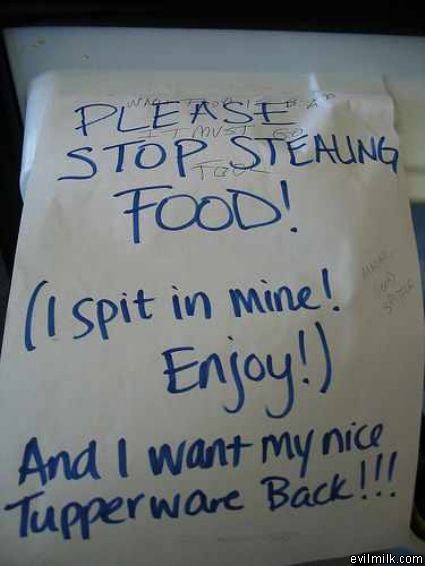 PLEASE
STOP STEALING
FOOD!
(I spit in mine!
Enjoy!)
And I want my nice
Tupperware Back!!!
IT MUST GO
TOO
evilmilk.com